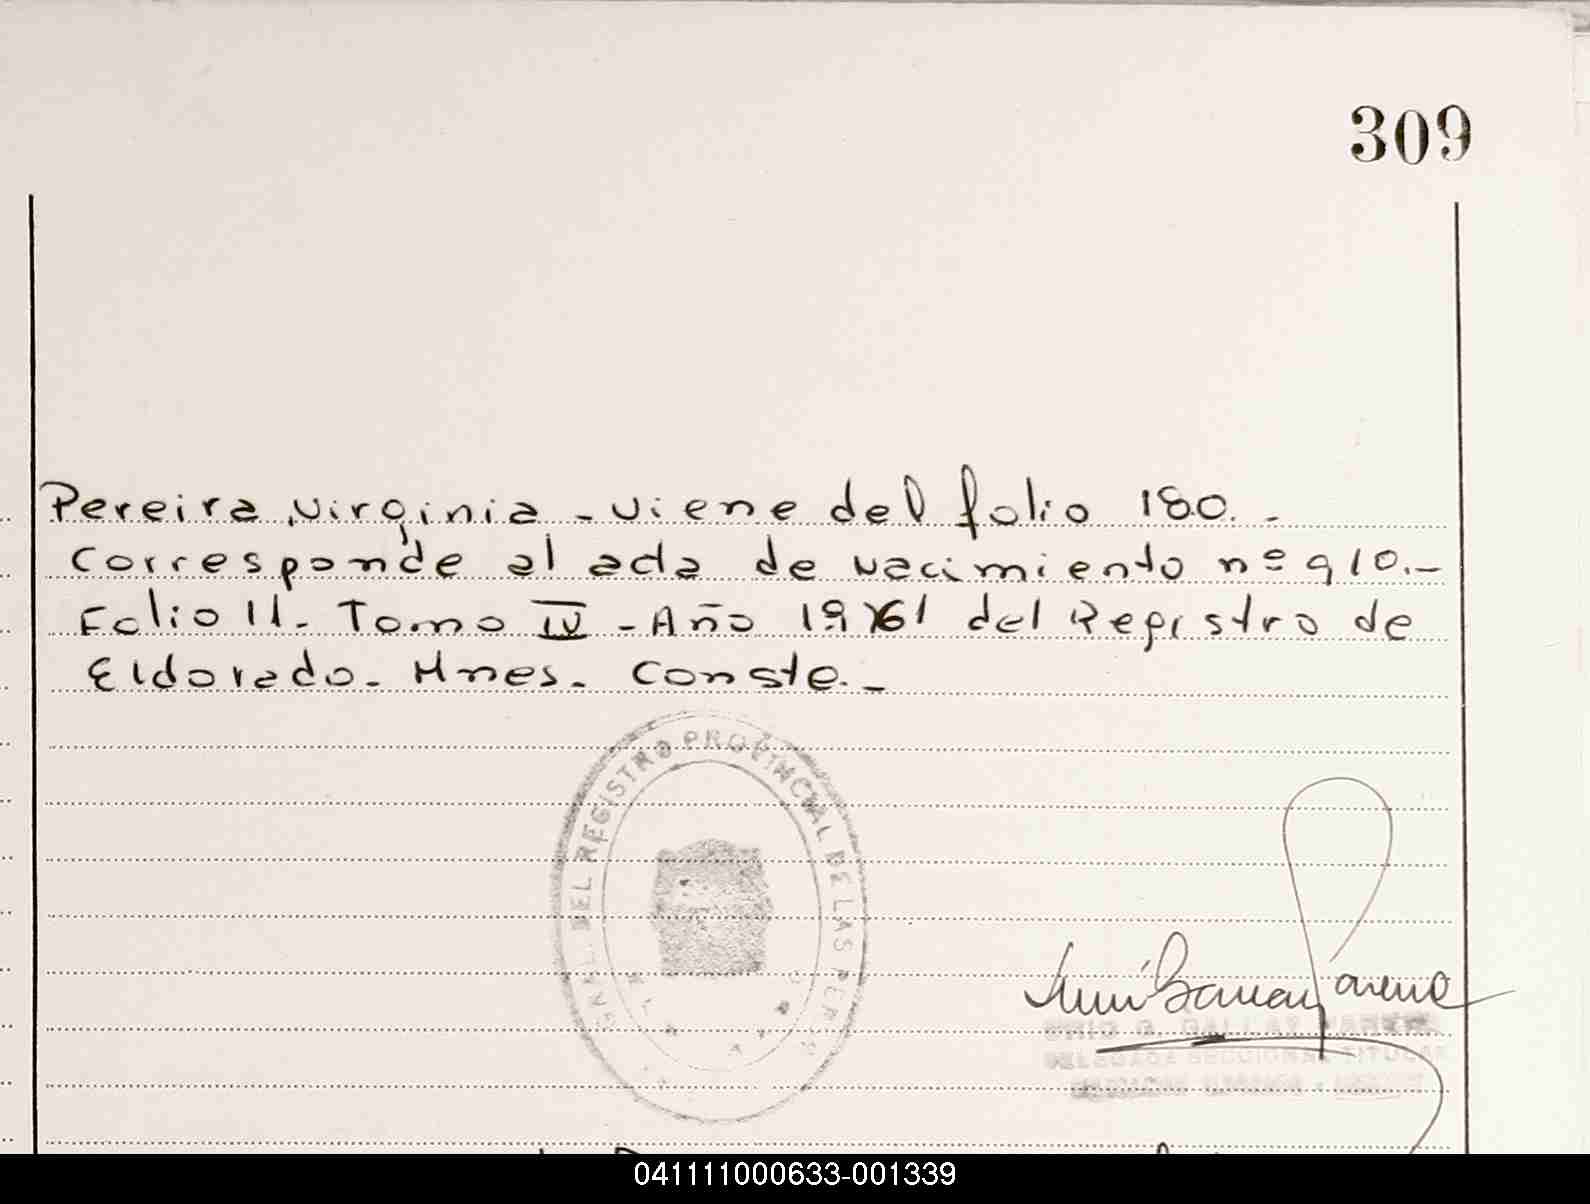 309
Pereira, Virginia - viene del folio 180. -
Corresponde al acta de nacimiento nº 910.-
Folio 11- Tomo IV - Año 1961 del Registro de
Eldorado- Mnes. Conste.-
GRAL. DEL REGISTRO PROVINCIAL DE LAS
DELEGADA SECCIONAL TITULAR
041111000633-001339